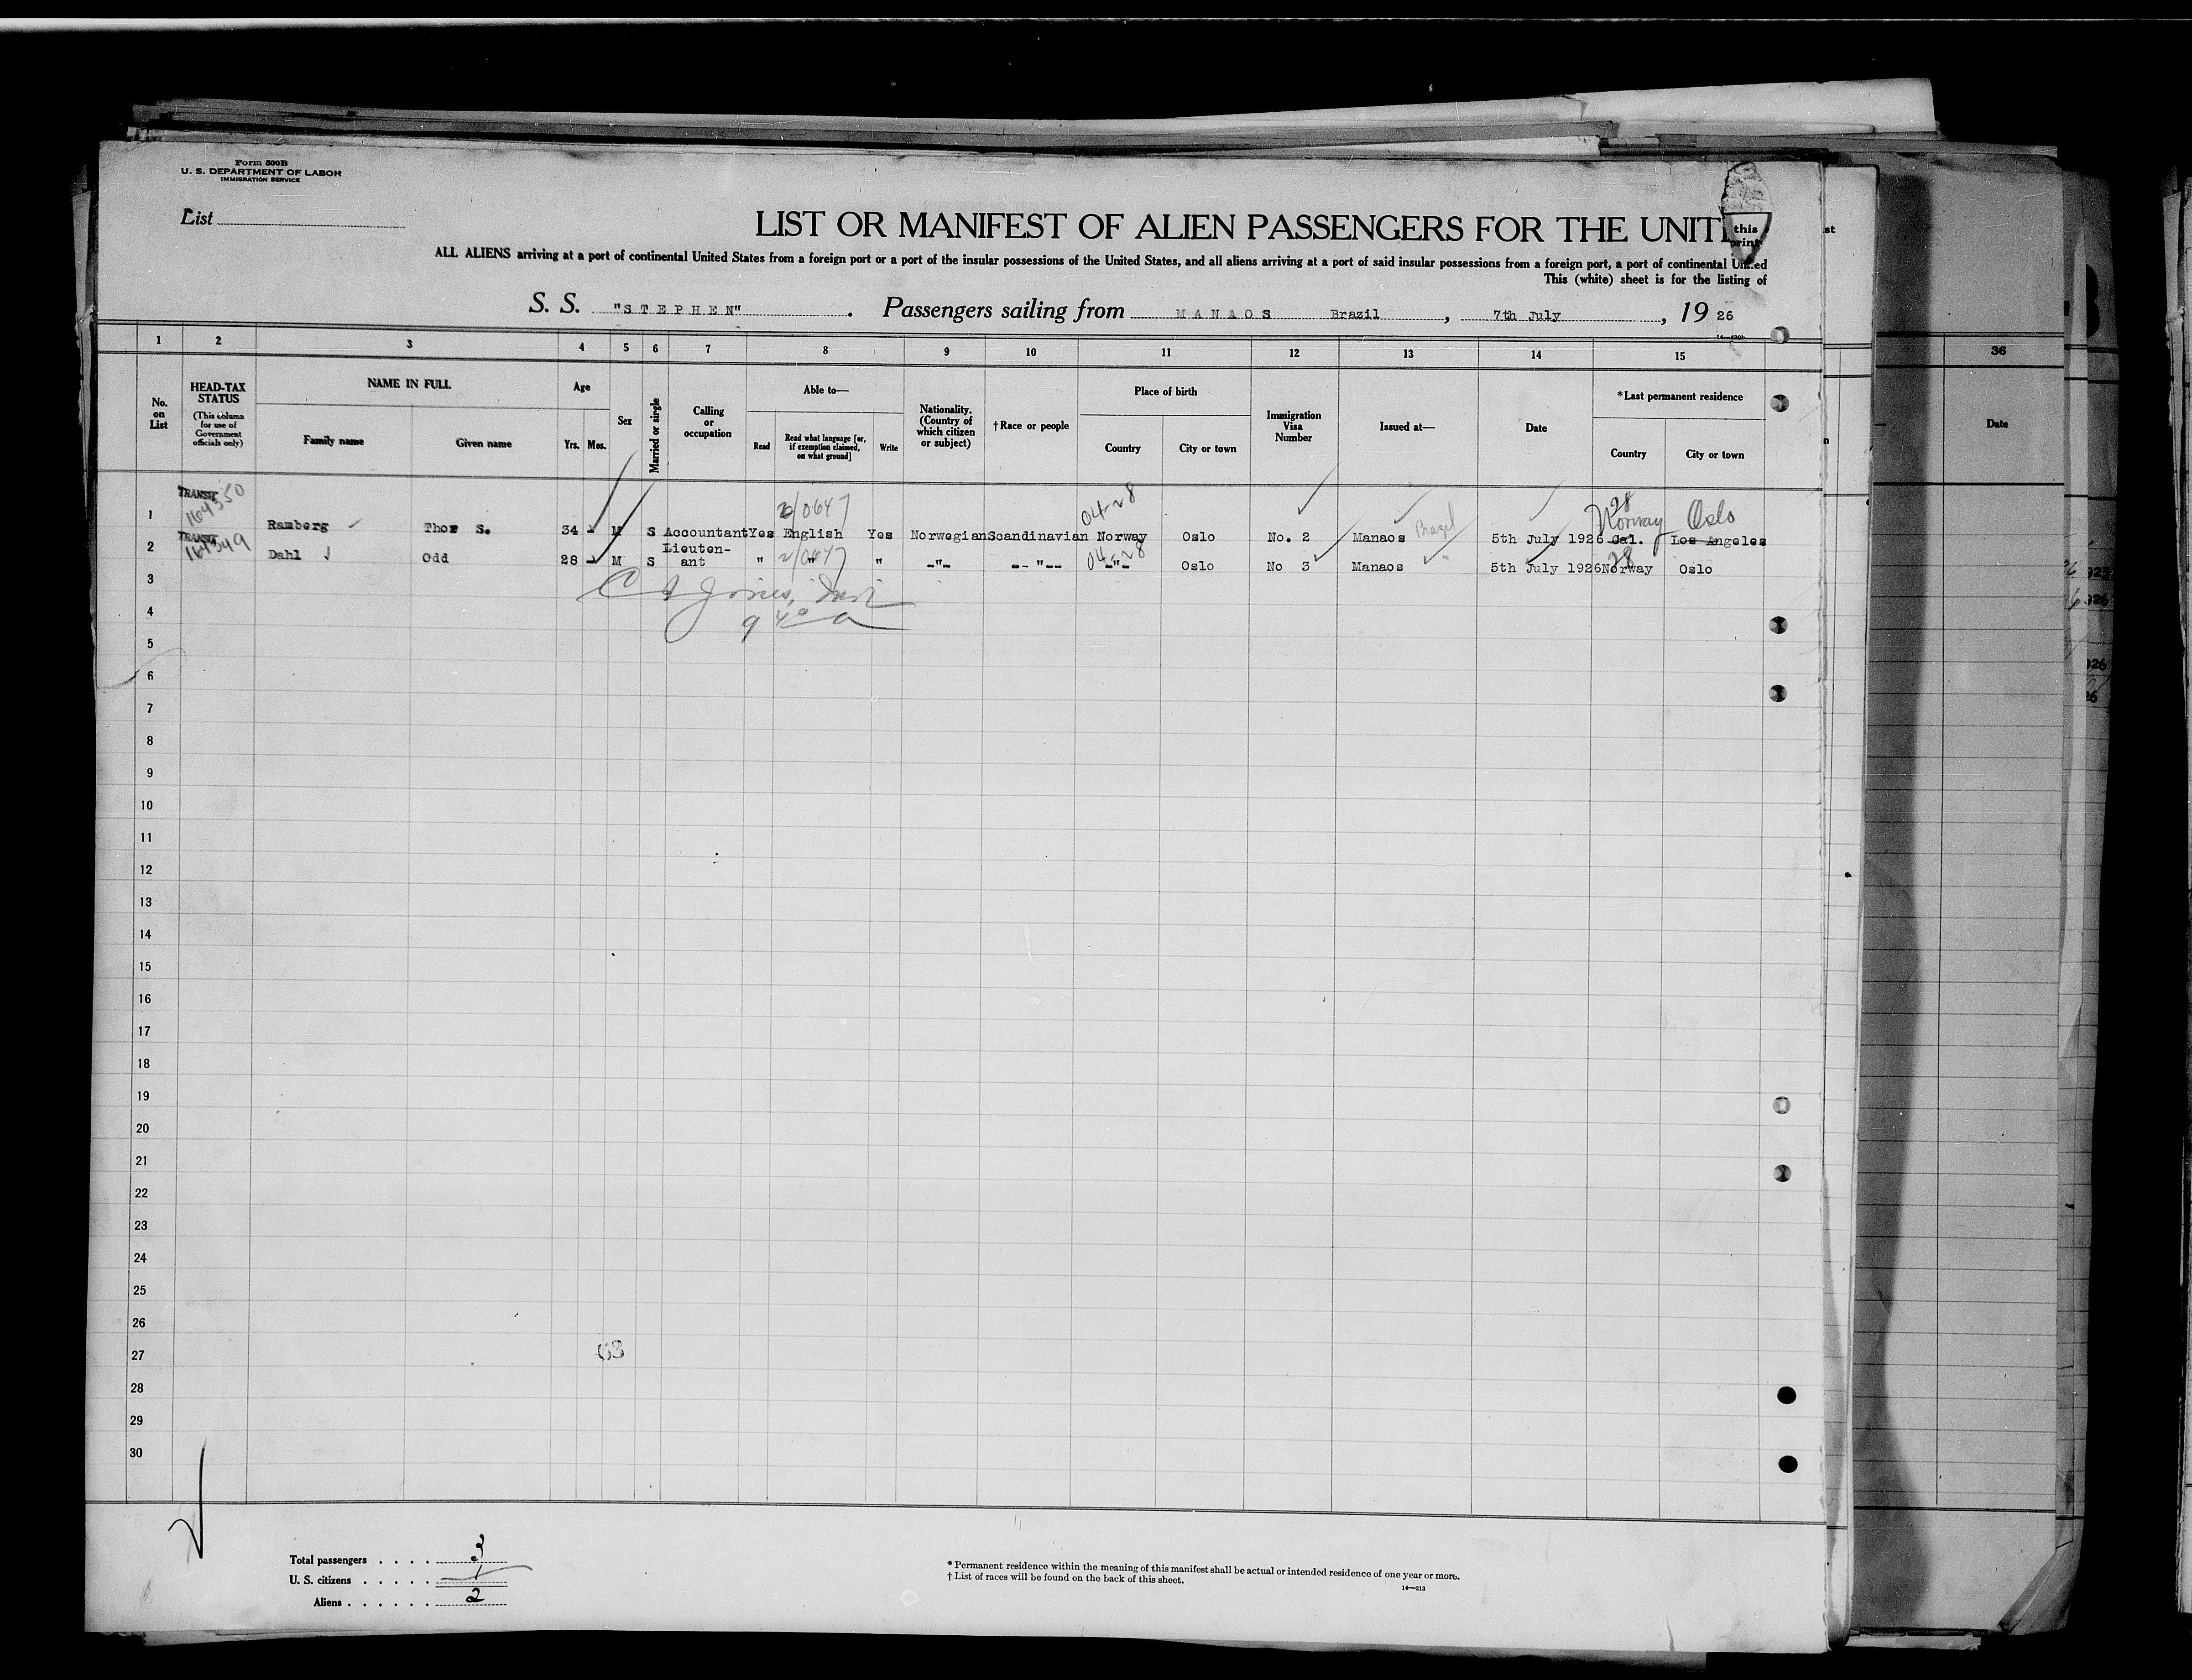 Form 500B
U. S. DEPARTMENT OF LABOR
IMMIGRATION SERVICE
List
LIST OR MANIFEST OF ALIEN PASSENGERS FOR THE UNIT
this
print
st
ALL ALIENS arriving at a port of continental United States from a foreign port or a port of the insular possessions of the United States, and all aliens arriving at a port of said insular possessions from a foreign port, a port of continental United
This (white) sheet is for the listing of
S. S. "STEPHEN". Passengers sailing from MANAOS Brazil, 7th July, 19 26
1 2 3 4 5 6 7 8 9 10 11 12 13 14 15 36
No. on List
HEAD-TAX STATUS
(This column for use of Government officials only)
NAME IN FULL
Family name Given name
Age
Yrs. Mos.
Sex
Married or single
Calling or occupation
Able to—
Read
Read what language [or, if exemption claimed, on what ground]
Write
Nationality. (Country of which citizen or subject)
†Race or people
Place of birth
Country City or town
Immigration Visa Number
Issued at—
Date
*Last permanent residence
Country City or town
Date
1 TRANSIT 164350 Ramberg Thor S. 34 - M S Accountant Yes English Yes Norwegian Scandinavian Norway Oslo No. 2 Manaos Brazil 5th July 1926 Cal. Norway Los Angeles Oslo
2 TRANSIT 164349 Dahl Odd 28 - M S Lieuten-
ant " " " -"- -- "-- -"- Oslo No 3 Manaos " 5th July 1926 Norway Oslo
3
4
5
6
7
8
9
10
11
12
13
14
15
16
17
18
19
20
21
22
23
24
25
26
27
28
29
30
Total passengers . . . . 3
U. S. citizens . . . . . 1
Aliens . . . . . . 2
* Permanent residence within the meaning of this manifest shall be actual or intended residence of one year or more.
† List of races will be found on the back of this sheet.
14—213